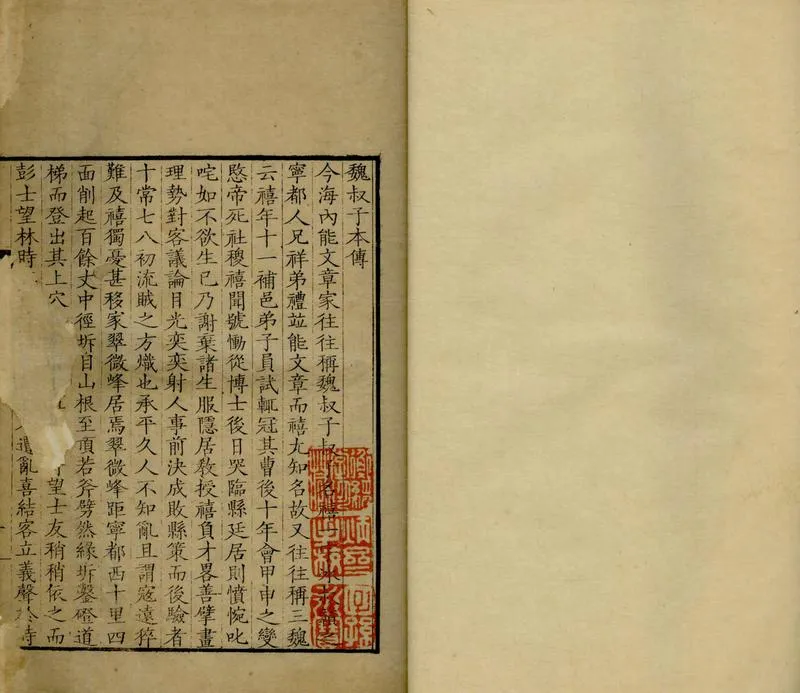 魏叔子本傳
今海內能文章家往往稱魏叔子叔子名禧一字叔贛之
寧都人兄祥弟禮竝能文章而禧尤知名故又往往稱三魏
云禧年十一補邑弟子員試輒冠其曹後十年會甲申之變
愍帝死社稷禧聞號慟從博士後日哭臨縣廷居則憤惋叱
咤如不欲生已乃謝棄諸生服隱居敎授禧負才畧善擘畫
理勢對客議論目光奕奕射人事前決成敗縣策而後驗者
十常七八初流賊之方熾也承平久人不知亂且謂寇遠猝
難及禧獨憂甚移家翠微峰居焉翠微峰距寧都西十里四
面削起百餘丈中徑坼自山根至頂若斧劈然緣坼鑿磴道
梯而登出其上穴望士友稍稍依之而
彭士望林時遭亂喜結客立義聲於時